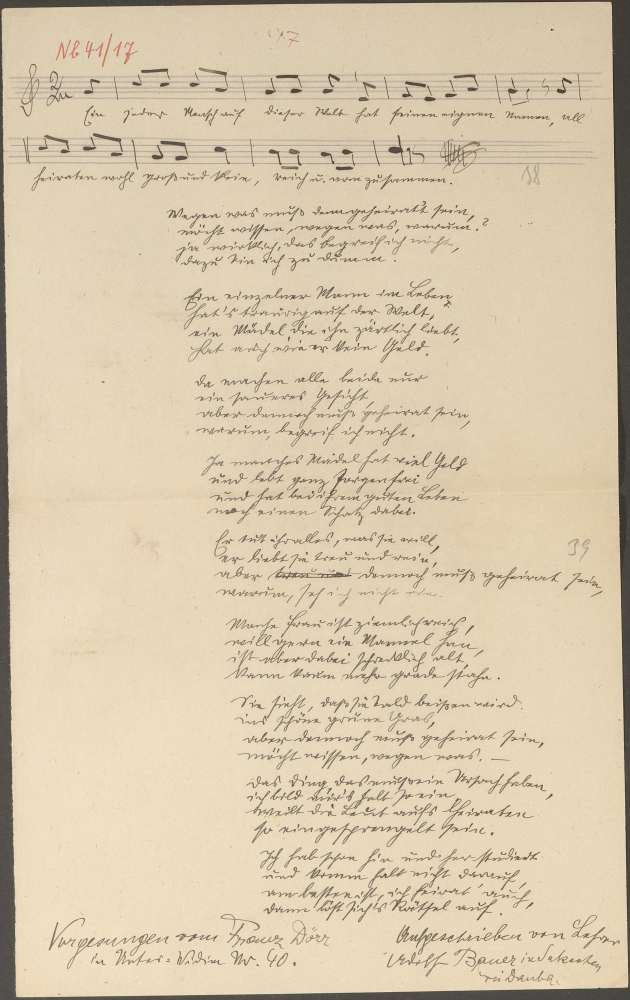 17
Nb 41/17
Ein jeder Mensch auf dieser Welt hat seinen eignen Namen, all
heiraten wohl groß und klein, reich u. arm zusammen.
38
Wegen was muß dem geheirat't sein,
möcht wissen, wegen was, warum?
ja wirklich, das begreif ich nicht,
dazu bin ich zu dumm.
Ein einzelner Mann im Leben
hat's traurig auf der Welt,
ein Mädel die ihn zärtlich liebt,
hat auch wie er kein Geld.
Da machen alle beide nur
ein saueres Gesicht,
aber dennoch muß geheirat sein,
warum, begreif ich nicht.
Ja manches Mädel hat viel Geld
und lebt ganz sorgenfrei
und hat bei ihrem guten Leben
noch einen Schatz dabei.
Er tut ihr alles, was sie will,
er liebt sie treu und rein,
39
aber treu und dennoch muß geheirat sein,
warum, seh ich nicht ein.
Manche Frau ist ziemlich reich,
will gern ein Mannel han,
ist aber dabei schrecklich alt,
kann kaum mehr grade stahn.
Sie sieht, daß sie bald beißen wird
ins schöne grüne Gras,
aber dennoch muß geheirat sein,
möcht wissen, wegen was. —
Das Ding das muß ein Ursach haben,
ich bild mir's halt so ein,
weil die Leut aufs Heiraten
so eingesprengelt sein.
Ich hab schon hin und her studiert
und komm halt nicht darauf,
am besten ist, ich heirat' auch,
dann löst sich's Rätsel auf.
Vorgesungen vom Franz Dörr
in Unter-Widim Nr. 40.
Aufgeschrieben von Lehrer
Adolf Bauer in
bei Dauba.